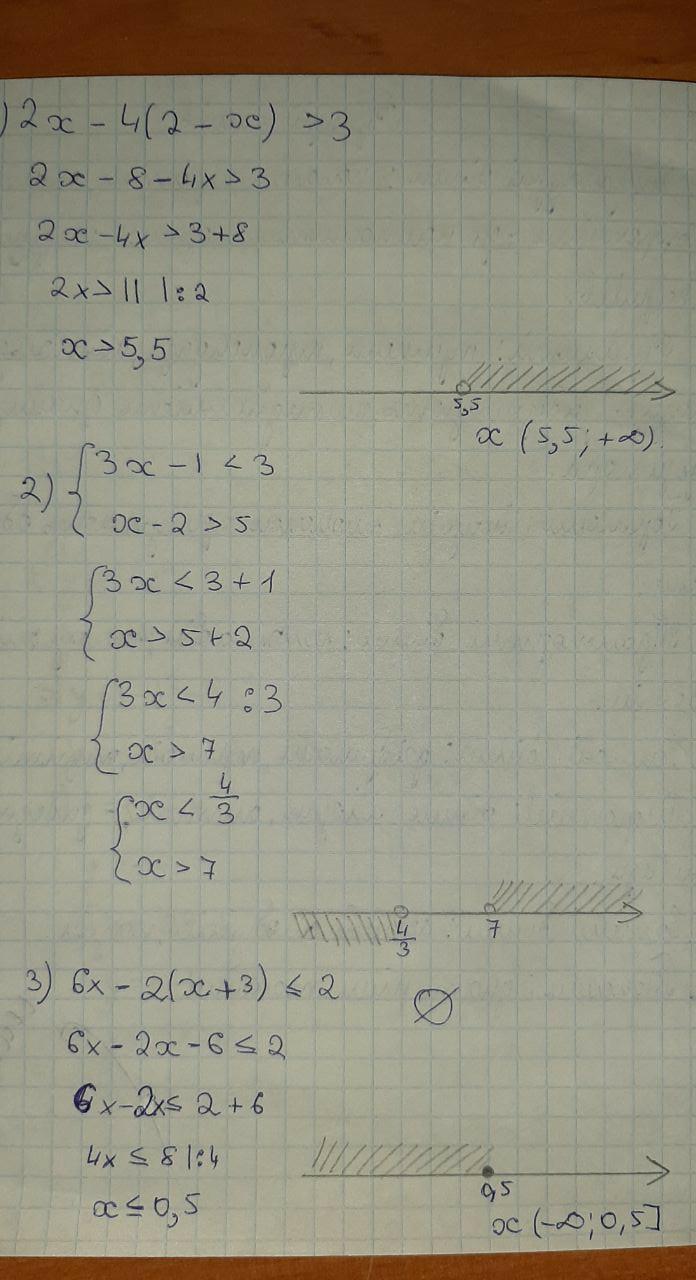 ) 2x - 4(2 - x) > 3
2x - 8 - 4x > 3
2x - 4x > 3 + 8
2x > 11 |:2
x > 5,5
5,5
x (5,5; +∞).
2) { 3x - 1 < 3
x - 2 > 5
{ 3x < 3 + 1
x > 5 + 2
{ 3x < 4 :3
x > 7
{ x < 4/3
x > 7
4/3 7
3) 6x - 2(x + 3) ≤ 2
∅
6x - 2x - 6 ≤ 2
6x - 2x ≤ 2 + 6
4x ≤ 8 |:4
x ≤ 0,5
0,5
x (-∞; 0,5]